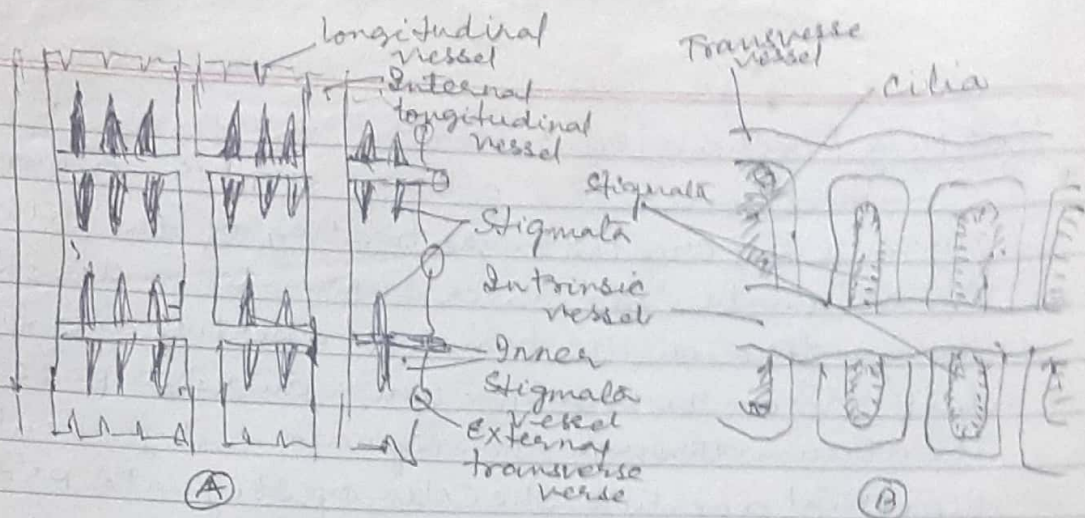 longitudinal
vessel
Internal
longitudinal
vessel
Stigmata
Intrinsic
vessel
Inner
Stigmata
vessel
External
transverse
verse
A
Transverse
vessel
Cilia
Stigmata
B